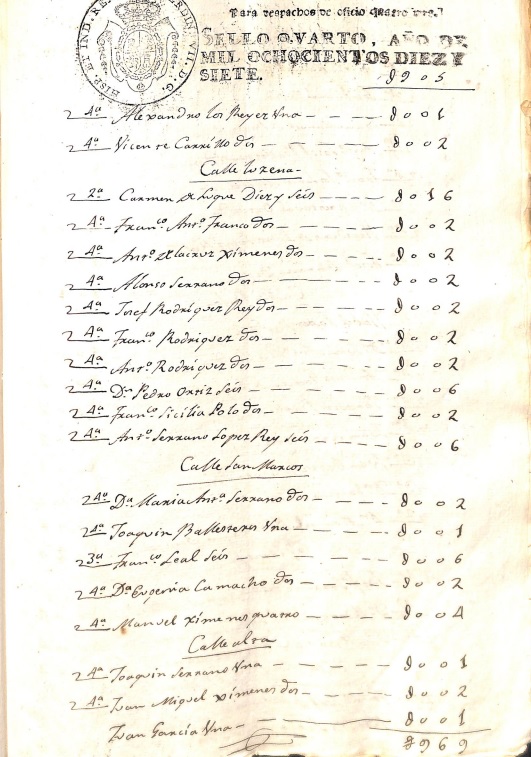 Para despachos de oficio quatro mrs.
SELLO QVARTO, AÑO DE
MIL OCHOCIENTOS DIEZ Y
SIETE.
8905
2 4ª Alexandro los Reyez Vna 8001
2 4ª Vicente Carrillo dos 8002
Calle luzena
2 2ª Carmen de Luque Diez y seis 8016
2 4ª Franco. Anto. Franco dos 8002
2 4ª Anto. de la cruz ximenes dos 8002
2 4ª Alonso serrano dos 8002
2 4ª Josef Rodriguez Rey dos 8002
2 4ª Franco. Rodriguez dos 8002
2 4ª Anto. Rodriguez dos 8002
2 4ª Dn. Pedro ortiz seis 8006
2 4ª Franco. sicilia Polo dos 8002
2 4ª Anto. serrano Lopez Rey seis 8006
Calle san Marcos
2 4ª Dª Maria Anta. serrano dos 8002
2 4ª Joaquin Ballesteros Vna 8001
2 3ª Franco. Leal seis 8006
2 4ª Dª Eugenia Camacho dos 8002
2 4ª Manuel ximenes quatro 8004
Calle alta
2 4ª Joaquin serrano Vna 8001
2 4ª Juan Miguel ximenes dos 8002
Juan Garcia Vna 8001
8969